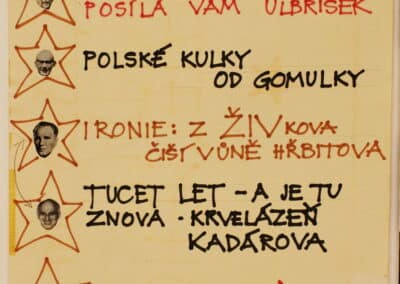 POSÍLÁ VÁM ULBRIŠEK
POLSKÉ KULKY
OD GOMULKY
IRONIE: Z ŽIVKOVA
ČIŠÍ VŮNĚ HŘBITOVA
TUCET LET – A JE TU
ZNOVA · KRVELÁZEŇ
KADÁROVA